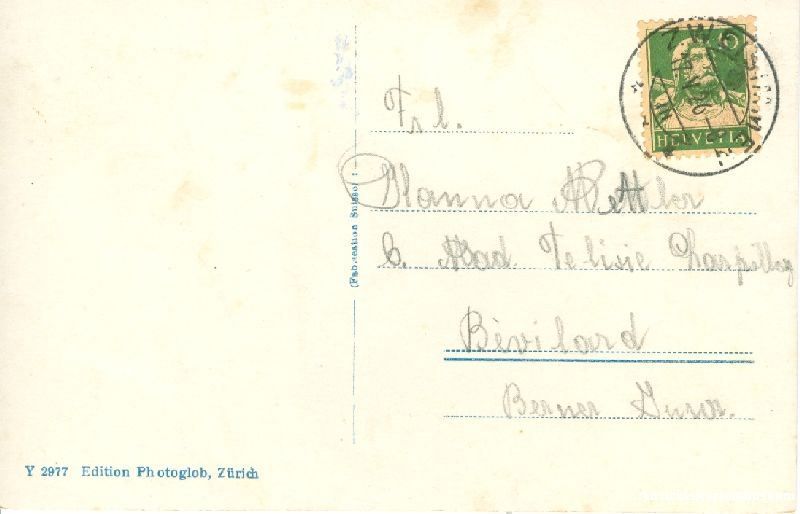 10
HELVETIA
Frl.
Hanna Mettler
b. Mad. Felisie
Bévilard
Berner Jura.
(Fabrication Suisse)
Y 2977 Edition Photoglob, Zürich